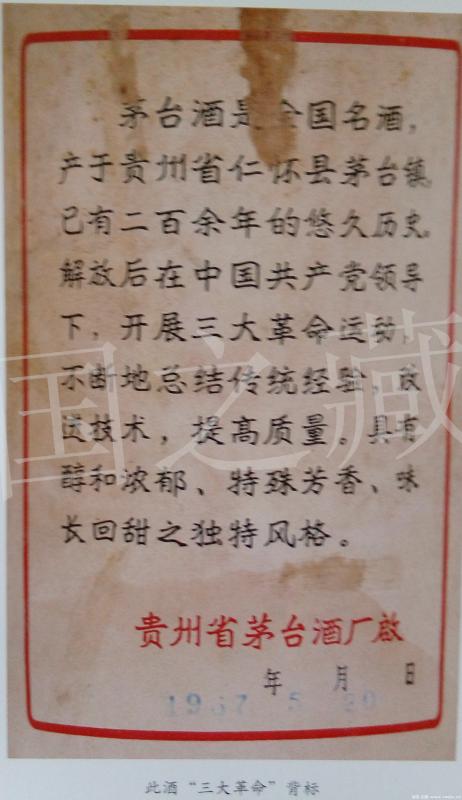 茅台酒是全国名酒，
产于贵州省仁怀县茅台镇，
已有二百余年的悠久历史。
解放后在中国共产党领导
下，开展三大革命运动，
不断地总结传统经验，改
进技术，提高质量。具有
醇和浓郁、特殊芳香、味
长回甜之独特风格。
贵州省茅台酒厂啟
年 月 日
1967 5 20
此酒“三大革命”背标
国之藏